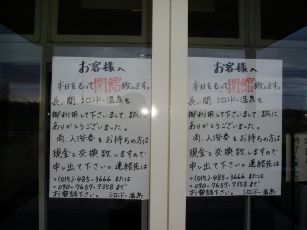 お客様へ
本日をもって閉館致します。
長い間シロンドー温泉を
御利用して下さいまして、誠に
ありがとうございました。
尚、入浴券をお持ちの方は
現金と交換致しますので
申し出て下さい。連絡先は
(015)-485-3666 または
090-7657-7358 まで
お電話下さい。 シロンドー温泉
お客様へ
本日をもって閉館致します。
長い間シロンドー温泉を
御利用して下さいまして、誠に
ありがとうございました。
尚、入浴券をお持ちの方は
現金と交換致しますので
申し出て下さい。連絡先は
(015)-485-3666 または
090-7657-7358 まで
お電話下さい。 シロンドー温泉